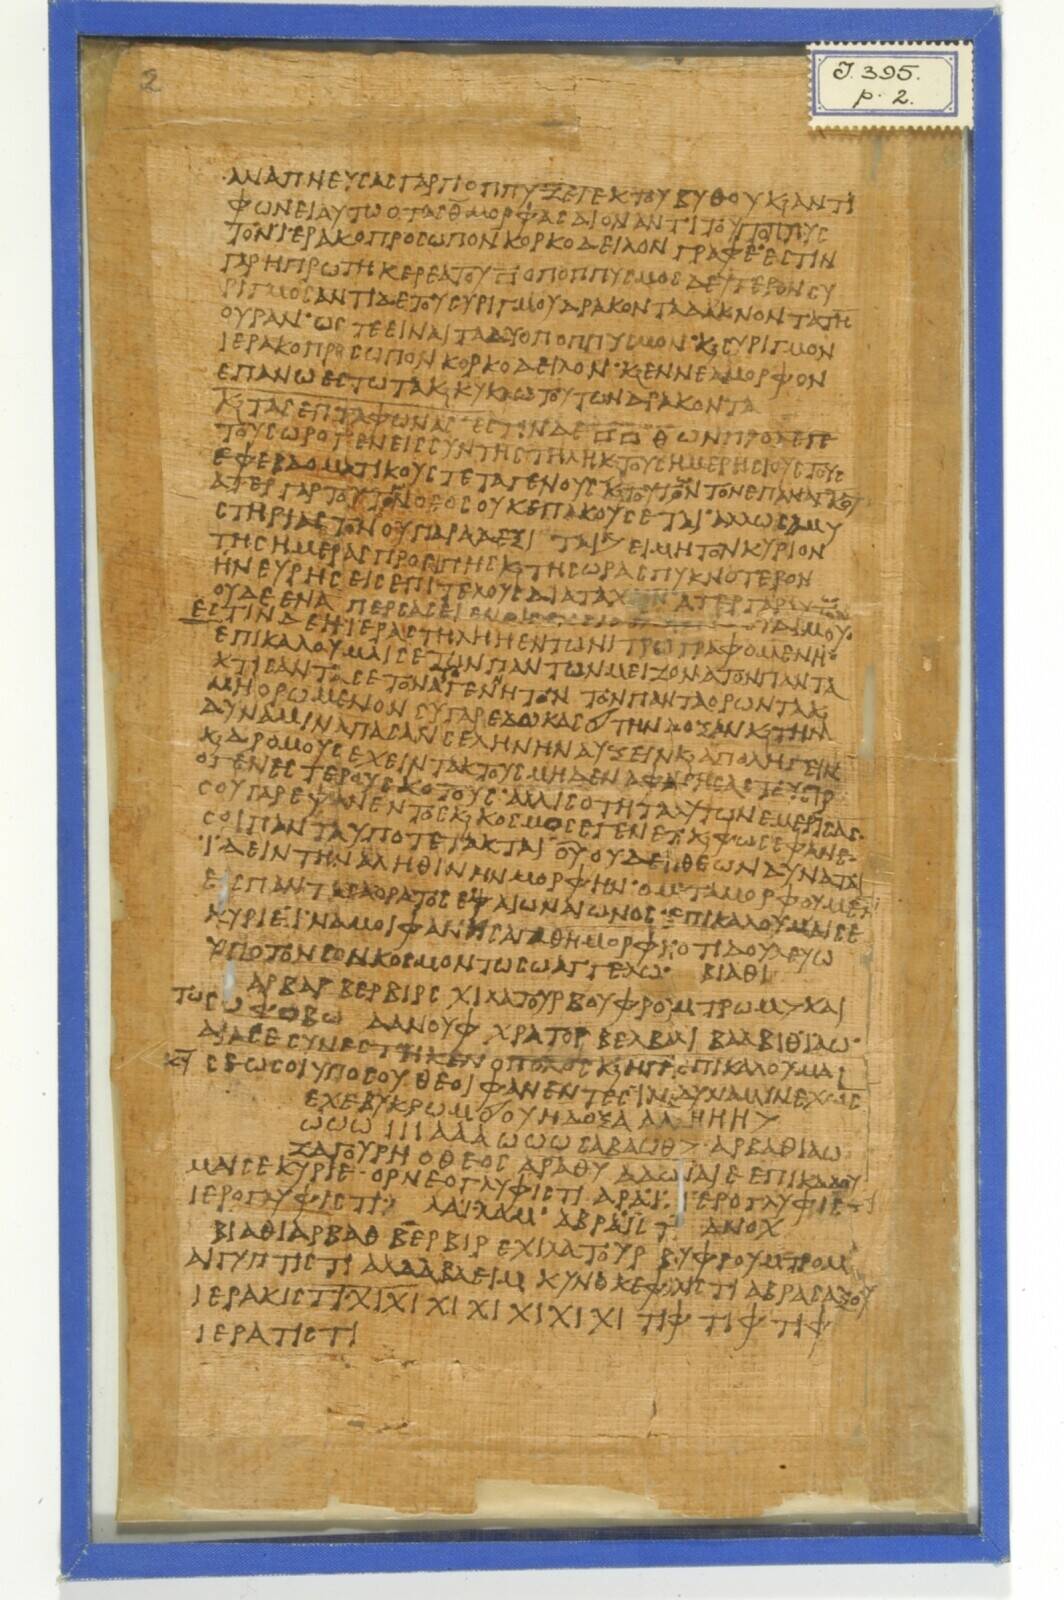 2
J. 395.
p. 2.
ΑΝΑΠΝΕΥϹΑϹ ΓΑΡ ΠΟΠΠΥΖΕΓ ΕΚ ΤΟΥ ΒΥΘΟΥ Κ ΑΝΤΙ
ΦΩΝΕΙ ΑΥΤΩ Ο ΤΑϹ Θ ΜΟΡΦΑϹ ΔΙΟΝ ΑΝΤΙ ΤΟΥ
ΤΟΝ ΙΕΡΑΚΟΠΡΟϹΩΠΟΝ ΚΟΡΚΟΔΕΙΛΟΝ ΓΡΑΦΕ ΕϹΤΙΝ
ΓΑΡ Η ΠΡΩΤΗ ΚΕΡΕΑ ΤΟΥ Ο ΠΟΠΠΥϹΜΟϹ ΔΕΥΤΕΡΟΝ ϹΥ
ΡΙΓΜΟϹ ΑΝΤΙ ΔΕ ΤΟΥ ϹΥΡΙΓΜΟΥ ΔΡΑΚΟΝΤΑ ΔΑΚΝΟΝΤΑ ΤΗ
ΟΥΡΑΝ ΩϹΤΕ ΕΙΝΑΙ ΤΑ ΔΥΟ ΠΟΠΠΥϹΜΟΝ Κ ϹΥΡΙΓΜΟΝ
ΙΕΡΑΚΟΠΡΟϹΩΠΟΝ ΚΟΡΚΟΔΕΙΛΟΝ Κ ΕΝΝΕΑΜΟΡΦΟΝ
ΕΠΑΝΩ ΕϹΤΩΤΑ Κ ΚΥΚΛΩ ΤΟΥΤΩΝ ΔΡΑΚΟΝΤΑ
Κ ΤΑϹ ΕΠΤΑ ΦΩΝΑϹ ΕϹΤΙΝ ΔΕ Θ ΩΝ ΠΡΟΛΕΓΕ
ΤΟΥϹ ΩΡΟΓΕΝΕΙϹ ϹΥΝ ΤΗ ϹΤΗΛΗ Κ ΤΟΥϹ ΗΜΕΡΗϹΙΟΥϹ ΤΟΥϹ
ΕΦΕΒΔΟΜΑΤΙΚΟΥϹ ΤΕΤΑΓΕΝΟΥϹ Κ ΤΟΝ
ΑΤΕΡ ΓΑΡ ΤΟΥΤΩΝ Ο ΘΕΟϹ ΟΥΚ ΕΠΑΚΟΥϹΕΤΑΙ ΑΛΛΩϹ ΑΜΥ
ϹΤΗΡΙΑϹΤΟΝ ΟΥ ΠΑΡΑΔΕΞΕΤΑΙ ΕΙ ΜΗ ΤΟΝ ΚΥΡΙΟΝ
ΤΗϹ ΗΜΕΡΑϹ ΠΡΟΕΙΠΗϹ Κ ΤΗϹ ΩΡΑϹ ΠΥΚΝΟΤΕΡΟΝ
ΗΝ ΕΥΡΗϹΕΙϹ ΕΠΙ ΤΕΛΟΥϹ ΔΙΑΤΑΧΗΝ ΑΤΕΡ ΓΑΡ
ΟΥΔΕ ΕΝΑ
ΕϹΤΙΝ ΔΕ Η ΙΕΡΑ ϹΤΗΛΗ Η ΕΝ ΤΩ ΝΙΤΡΩ ΓΡΑΦΟΜΕΝΗ
ΕΠΙΚΑΛΟΥΜΑΙ ϹΕ ΤΩΝ ΠΑΝΤΩΝ ΜΕΙΖΟΝΑ ΤΟΝ ΠΑΝΤΑ
ΚΤΙϹΑΝΤΑ ϹΕ ΤΟΝ ΑΥΤΟΓΕΝΝΗΤΟΝ ΤΟΝ ΠΑΝΤΑ ΟΡΩΝΤΑ Κ
ΜΗ ΟΡΩΜΕΝΟΝ ϹΥ ΓΑΡ ΕΔΩΚΑϹ ΤΗΝ ΔΟΞΑΝ Κ ΤΗΝ
ΔΥΝΑΜΙΝ ΑΠΑϹΑΝ ϹΕΛΗΝΗΝ ΑΥΞΕΙΝ Κ ΑΠΟΛΗΓΕΙΝ
Κ ΔΡΟΜΟΥϹ ΕΧΕΙΝ ΤΑΚΤΟΥϹ ΜΗΔΕΝ ΑΦΑΙΡΗϹΑϹ ΤΟΥ ΠΡ
ΟΓΕΝΕϹΤΕΡΟΥ ϹΚΟΤΟΥϹ ΑΛΛ ΙϹΟΤΗΤΑ ΑΥΤΩΝ ΕΜΕΡΙϹΑϹ
ϹΟΥ ΓΑΡ ΦΑΝΕΝΤΟϹ Κ ΚΟϹΜΟϹ ΕΓΕΝΕΤΟ Κ ΦΩϹ ΕΦΑΝΕ
ϹΟΙ ΠΑΝΤΑ ΥΠΟΤΕΤΑΚΤΑΙ ΟΥ ΟΥΔΕΙϹ ΘΕΩΝ ΔΥΝΑΤΑΙ
ΙΔΕΙΝ ΤΗΝ ΑΛΗΘΙΝΗΝ ΜΟΡΦΗΝ Ο ΜΕΤΑΜΟΡΦΟΥΜΕΝ
ΕΙϹ ΠΑΝΤΑϹ ΑΟΡΑΤΟϹ ΕΙ ΑΙΩΝ ΑΙΩΝΟϹ ΕΠΙΚΑΛΟΥΜΑΙ ϹΕ
ΚΥΡΙΕ ΙΝΑ ΜΟΙ ΦΑΝΗ ΑΓΑΘΗ ΜΟΡΦΗ ΟΤΙ ΔΟΥΛΕΥΩ
ΥΠΟ ΤΟΝ ϹΟΝ ΚΟϹΜΟΝ ΤΩ ϹΩ ΑΓΓΕΛΩ ΒΙΑΘΙ
ΑΡΒΑΡ ΒΕΡΒΙΡϹ ΧΙΛΑΤΟΥΡ ΒΟΥΦΡΟΥΜΤΡΩΜ ΚΑΙ
ΤΩ ϹΩ ΦΟΒΩ ΔΑΝΟΥΦ ΧΡΑΤΟΡ ΒΕΛΒΑΛΙ ΒΑΛΒΙΘ ΙΑΩ
ΔΙΑ ϹΕ ϹΥΝΕϹΤΗΚΕΝ Ο ΠΟΛΟϹ Κ Η ΓΗ ΕΠΙΚΑΛΟΥΜΑΙ
ϹΕ ΩϹ ΟΙ ΥΠΟ ϹΟΥ ΘΕΟΙ ΦΑΝΕΝΤΕϹ ΙΝΑ ΔΥΝΑΜΙΝ ΕΧΩϹΙ
ΕΧΕΒΥΚΡΩΜ ΟΥ Η ΔΟΞΑ ΑΑ ΗΗΗ
ΩΩΩ ΙΙΙ ΑΑΑ ΩΩΩ ϹΑΒΑΩΘ ΑΡΒΑΘΙΑΩ
ΖΑΓΟΥΡΗ Ο ΘΕΟϹ ΑΡΑΘΥ ΑΔΩΝΑΙΕ ΕΠΙΚΑΛΟΥ
ΜΑΙ ϹΕ ΚΥΡΙΕ ΟΡΝΕΟΓΛΥΦΙϹΤΙ ΑΡΑΙ ΙΕΡΟΓΛΥΦΙϹΤΙ
ΙΕΡΟΓΛΥΦΙϹΤΙ ΛΑΙΛΑΜ ΑΒΡΑΙϹΤΙ ΑΝΟΧ
ΒΙΑΘΙΑΡΒΑΘ ΒΕΡΒΙΡ ΕΧΙΛΑΤΟΥΡ ΒΥΦΡΟΥΜΤΡΟΜ
ΑΙΓΥΠΤΙϹΤΙ ΑΛΔΑΒΑΕΙΜ ΚΥΝΟΚΕΦΑΛΙϹΤΙ ΑΒΡΑϹΑΞ
ΙΕΡΑΚΙϹΤΙ ΧΙ ΧΙ ΧΙ ΧΙ ΧΙ ΧΙ ΧΙ ΤΙΦ ΤΙΦ ΤΙΦ
ΙΕΡΑΤΙϹΤΙ